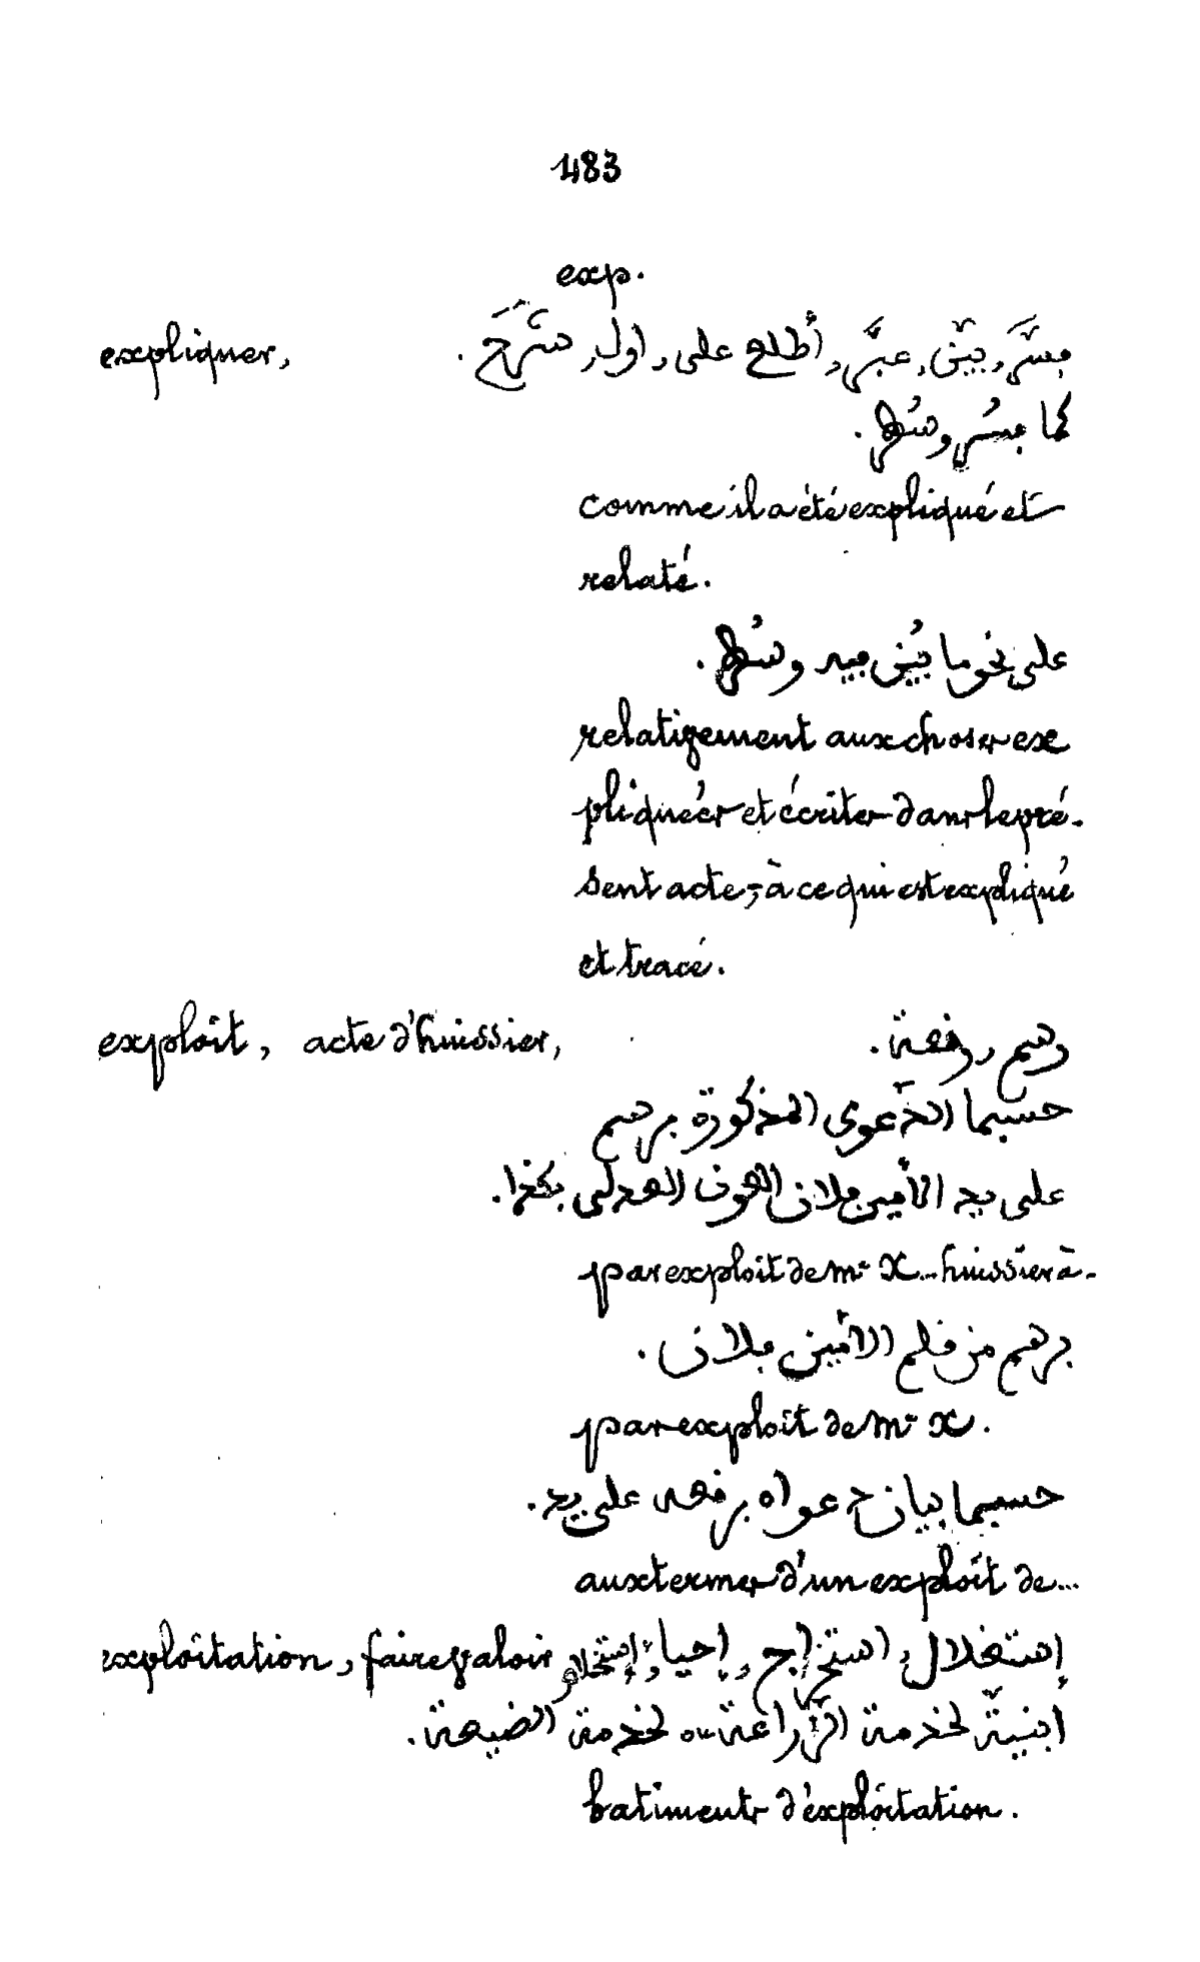 483
exp.
expliquer, فسَّر, بيّن, عبَّر, أطلع على, اول, شَرَحَ.
كما فسُر وسُطر.
comme il a été expliqué et
relaté.
على نحو ما بُيّن فيه وسُطر.
relativement aux choses ex
pliquées et écrites dans le pré-
sent acte; à ce qui est expliqué
et tracé.
exploit, acte d'huissier, رسم, رقعة.
حسبما الدّعوى المذكورة برسم
على يد الأمين فلان العون العدلى بكذا.
par exploit de Me X... huissier à-
برسم من قلم الأمين فلان.
par exploit de Me X.
حسبما بيان دعواه برقعه على يد.
aux termes d'un exploit de...
exploitation, faire valoir إستغلال, استخراج, إحياء, إستخلاص
ابنيّة لخدمة الزّراعة ou لخدمة الضيعة.
batiments d'exploitation.